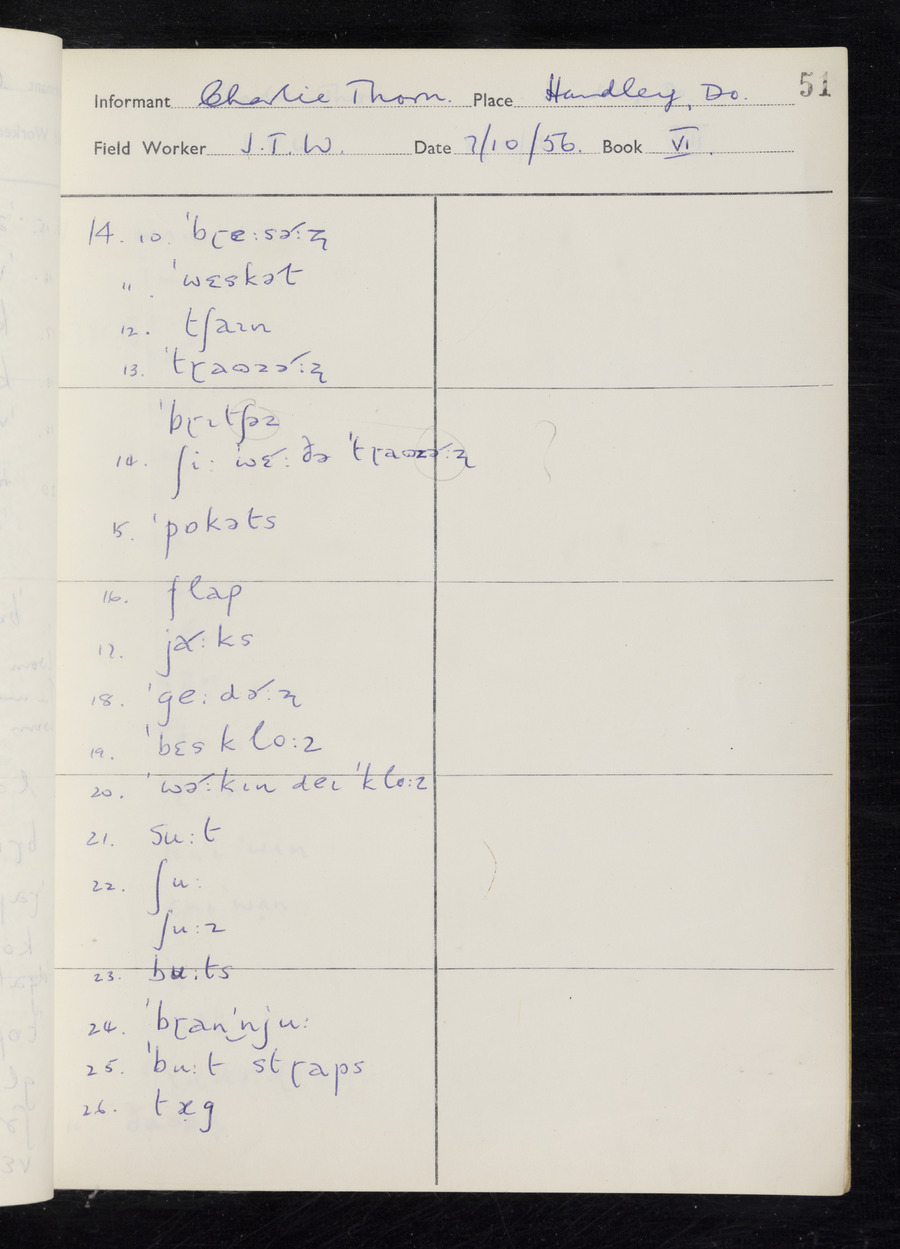 Informant Charlie Thorn. Place Handley, Do. 51
Field Worker J.T.W. Date 7/10/56. Book VI.
14. 10. ˈbɽe:sə˞:ʐ
11. ˈwɛskət
12. tʃaɪn
13. ˈtɽaʊzə˞:ʐ
ˈbɽɪtʃəz
14. ʃi: wɛ˞: ðə ˈtɽaʊzə˞:ʐ
15. ˈpɒkəts
16. flap
17. jɑ˞:ks
18. ˈge:də˞:ʐ
19. ˈbɛs klo:z
20. ˈwə˞:kɪn deɪ ˈklo:z
21. su:t
22. ʃu:
ʃu:z
23. bu:ts
24. ˈbɽanˈnju:
25. ˈbu:t stɽaps
26. tæg